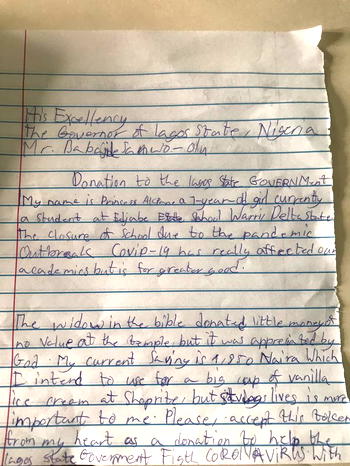 His Excellency
the Governor of Lagos State, Nigeria
Mr. Babajide Sanwo-Olu
Donation to the Lagos State GOVERNMENT
My name is Princess a 7-year-old girl currently
a student at School Warri Delta State
The closure of School due to the pandemic
Outbreak Covid-19 has really affected our
academics but is for greater good.
The widow in the bible donated little money of
no value at the temple but it was appreciated by
God. My current Saving is 1,850 Naira Which
I intend to use for a big cup of vanilla
ice cream at Shoprite, but lives is more
important to me. Please accept this token
from my heart as a donation to help the
Lagos State Government Figth CORONAVIRUS With